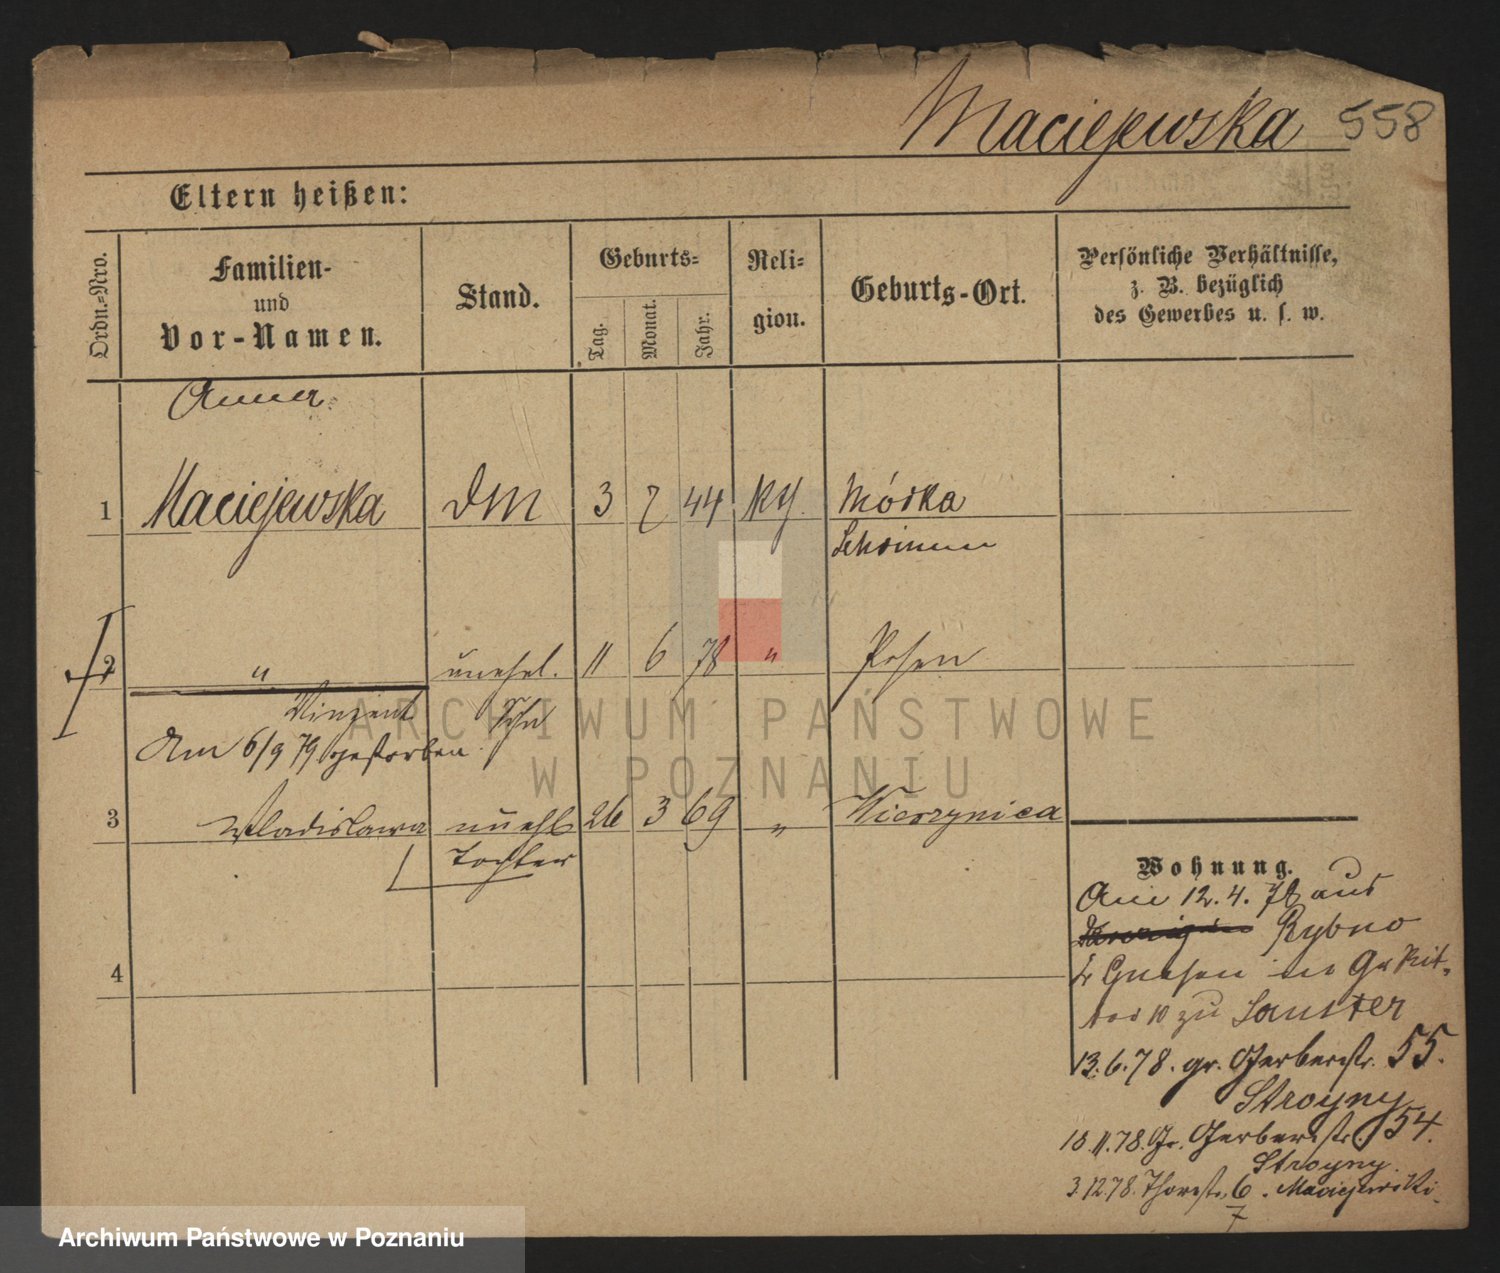 Maciejewska 558
Eltern heißen:
Ordn.=Nro.
Familien-
und
Vor-Namen.
Stand.
Geburts=
Tag.
Monat.
Jahr.
Reli-
gion.
Geburts-Ort.
Persönliche Verhältnisse,
z. B. bezüglich
des Gewerbes u. s. w.
Anna
1 Maciejewska DM 3 7 44 Kth. Mórka
Schrimm
2 " unehel. 11 6 78 " Posen
Vinzent Sohn
Am 6/9 79 gestorben.
3 Wladislawa unehl 26 3 69 " Wierzynica
Tochter
4
Wohnung.
Am 12.4.78 aus
Rybno
Gnesen in Gr Rit-
10 zu
13.6.78. gr. Gerberstr. 55.
Stroyny
18.11.78. Gr. Gerberstr. 54.
Stroyny.
3.12.78. Thorstr. 6. Maciejewski.
7
ARCHIWUM PAŃSTWOWE
W POZNANIU
Archiwum Państwowe w Poznaniu